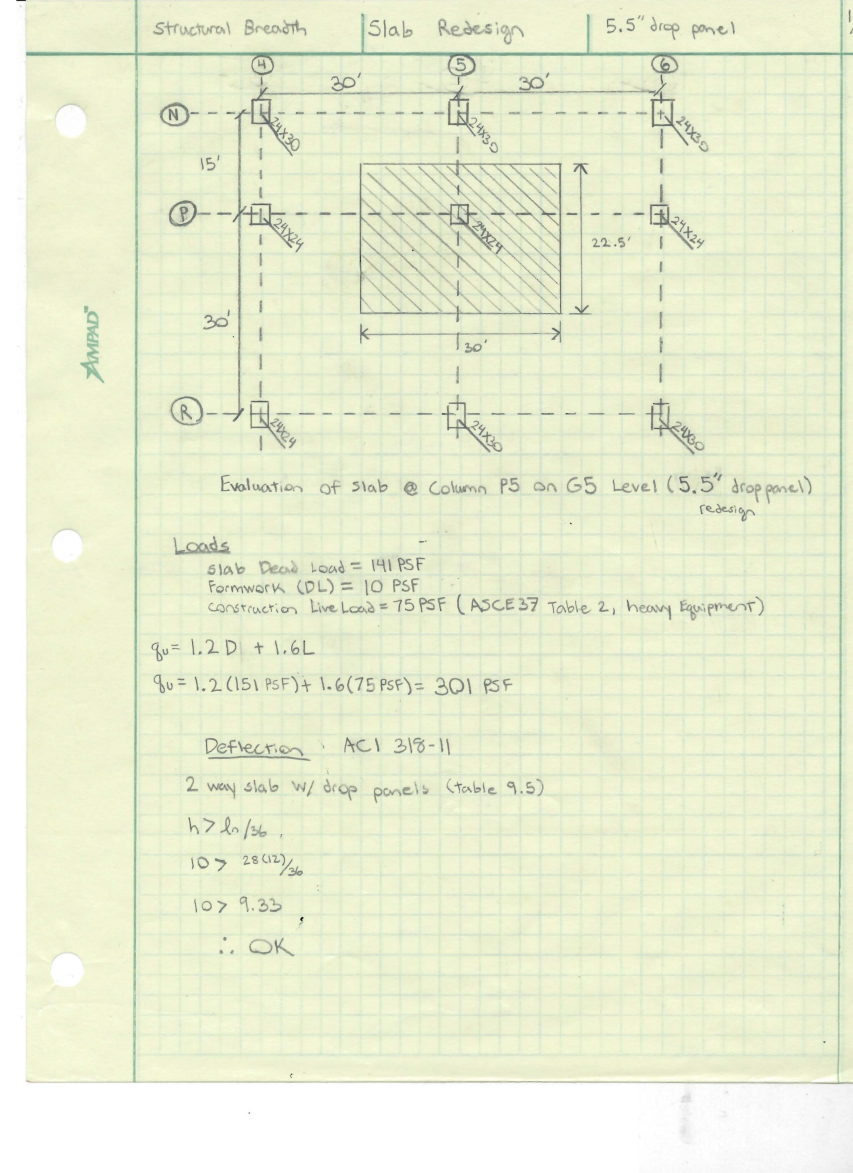 Structural Breadth
Slab Redesign
5.5" drop panel
4
5
6
30'
30'
N
24X30
24X30
24X30
15'
P
24X24
24X24
24X24
22.5'
30'
30'
R
24X24
24X30
24X30
AMPAD
Evaluation of slab @ Column P5 on G5 Level (5.5" drop panel)
redesign
Loads
Slab Dead Load = 141 PSF
Formwork (DL) = 10 PSF
Construction Live Load = 75 PSF (ASCE37 Table 2, heavy Equipment)
qu = 1.2 D + 1.6L
qu = 1.2 (151 PSF) + 1.6(75 PSF) = 301 PSF
Deflection ACI 318-11
2 way slab w/ drop panels (table 9.5)
h > ln/36
10 > 28(12)/36
10 > 9.33
∴ OK